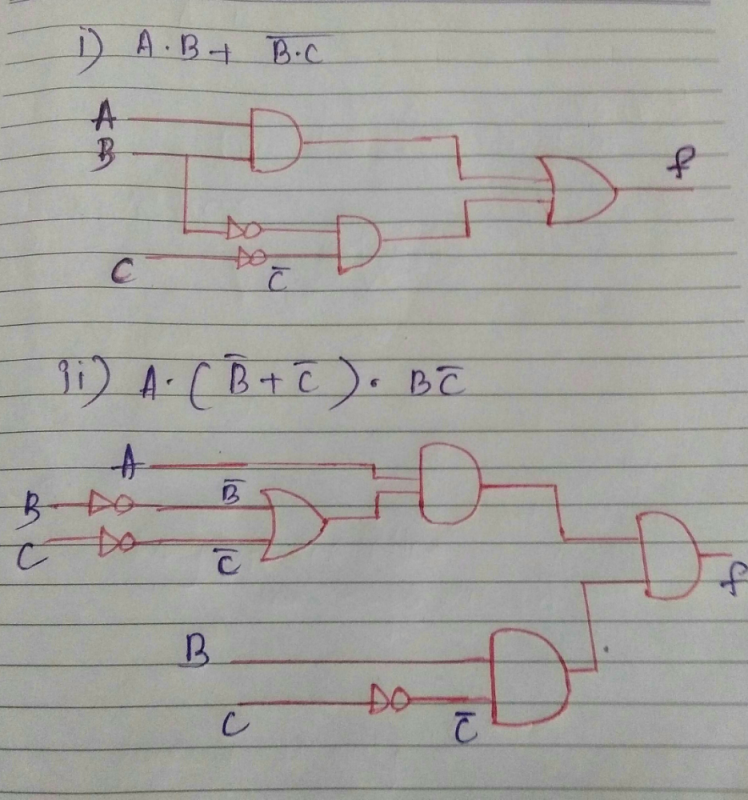 i) A · B + B̅·̅C̅
A
B
f
C
C̅
ii) A · ( B̅ + C̅ ) · B C̅
A
B
B̅
C
C̅
f
B
C
C̅